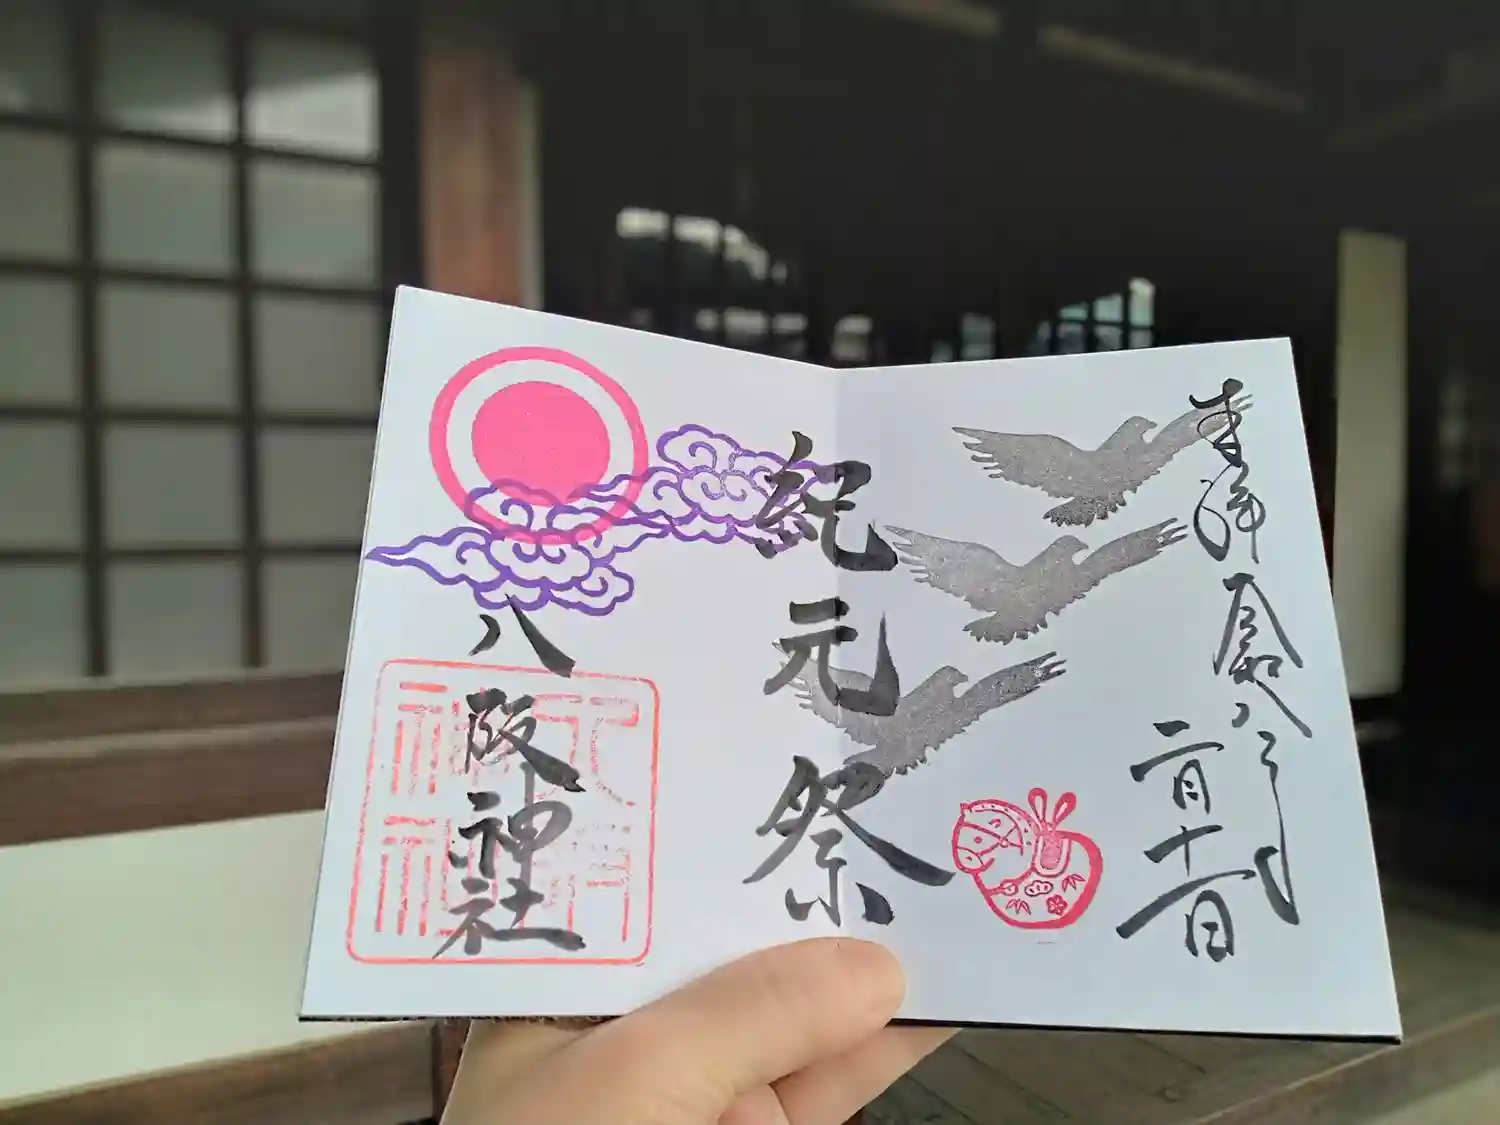 奉拝
令和八年
二月十一日
紀元祭
八阪神社